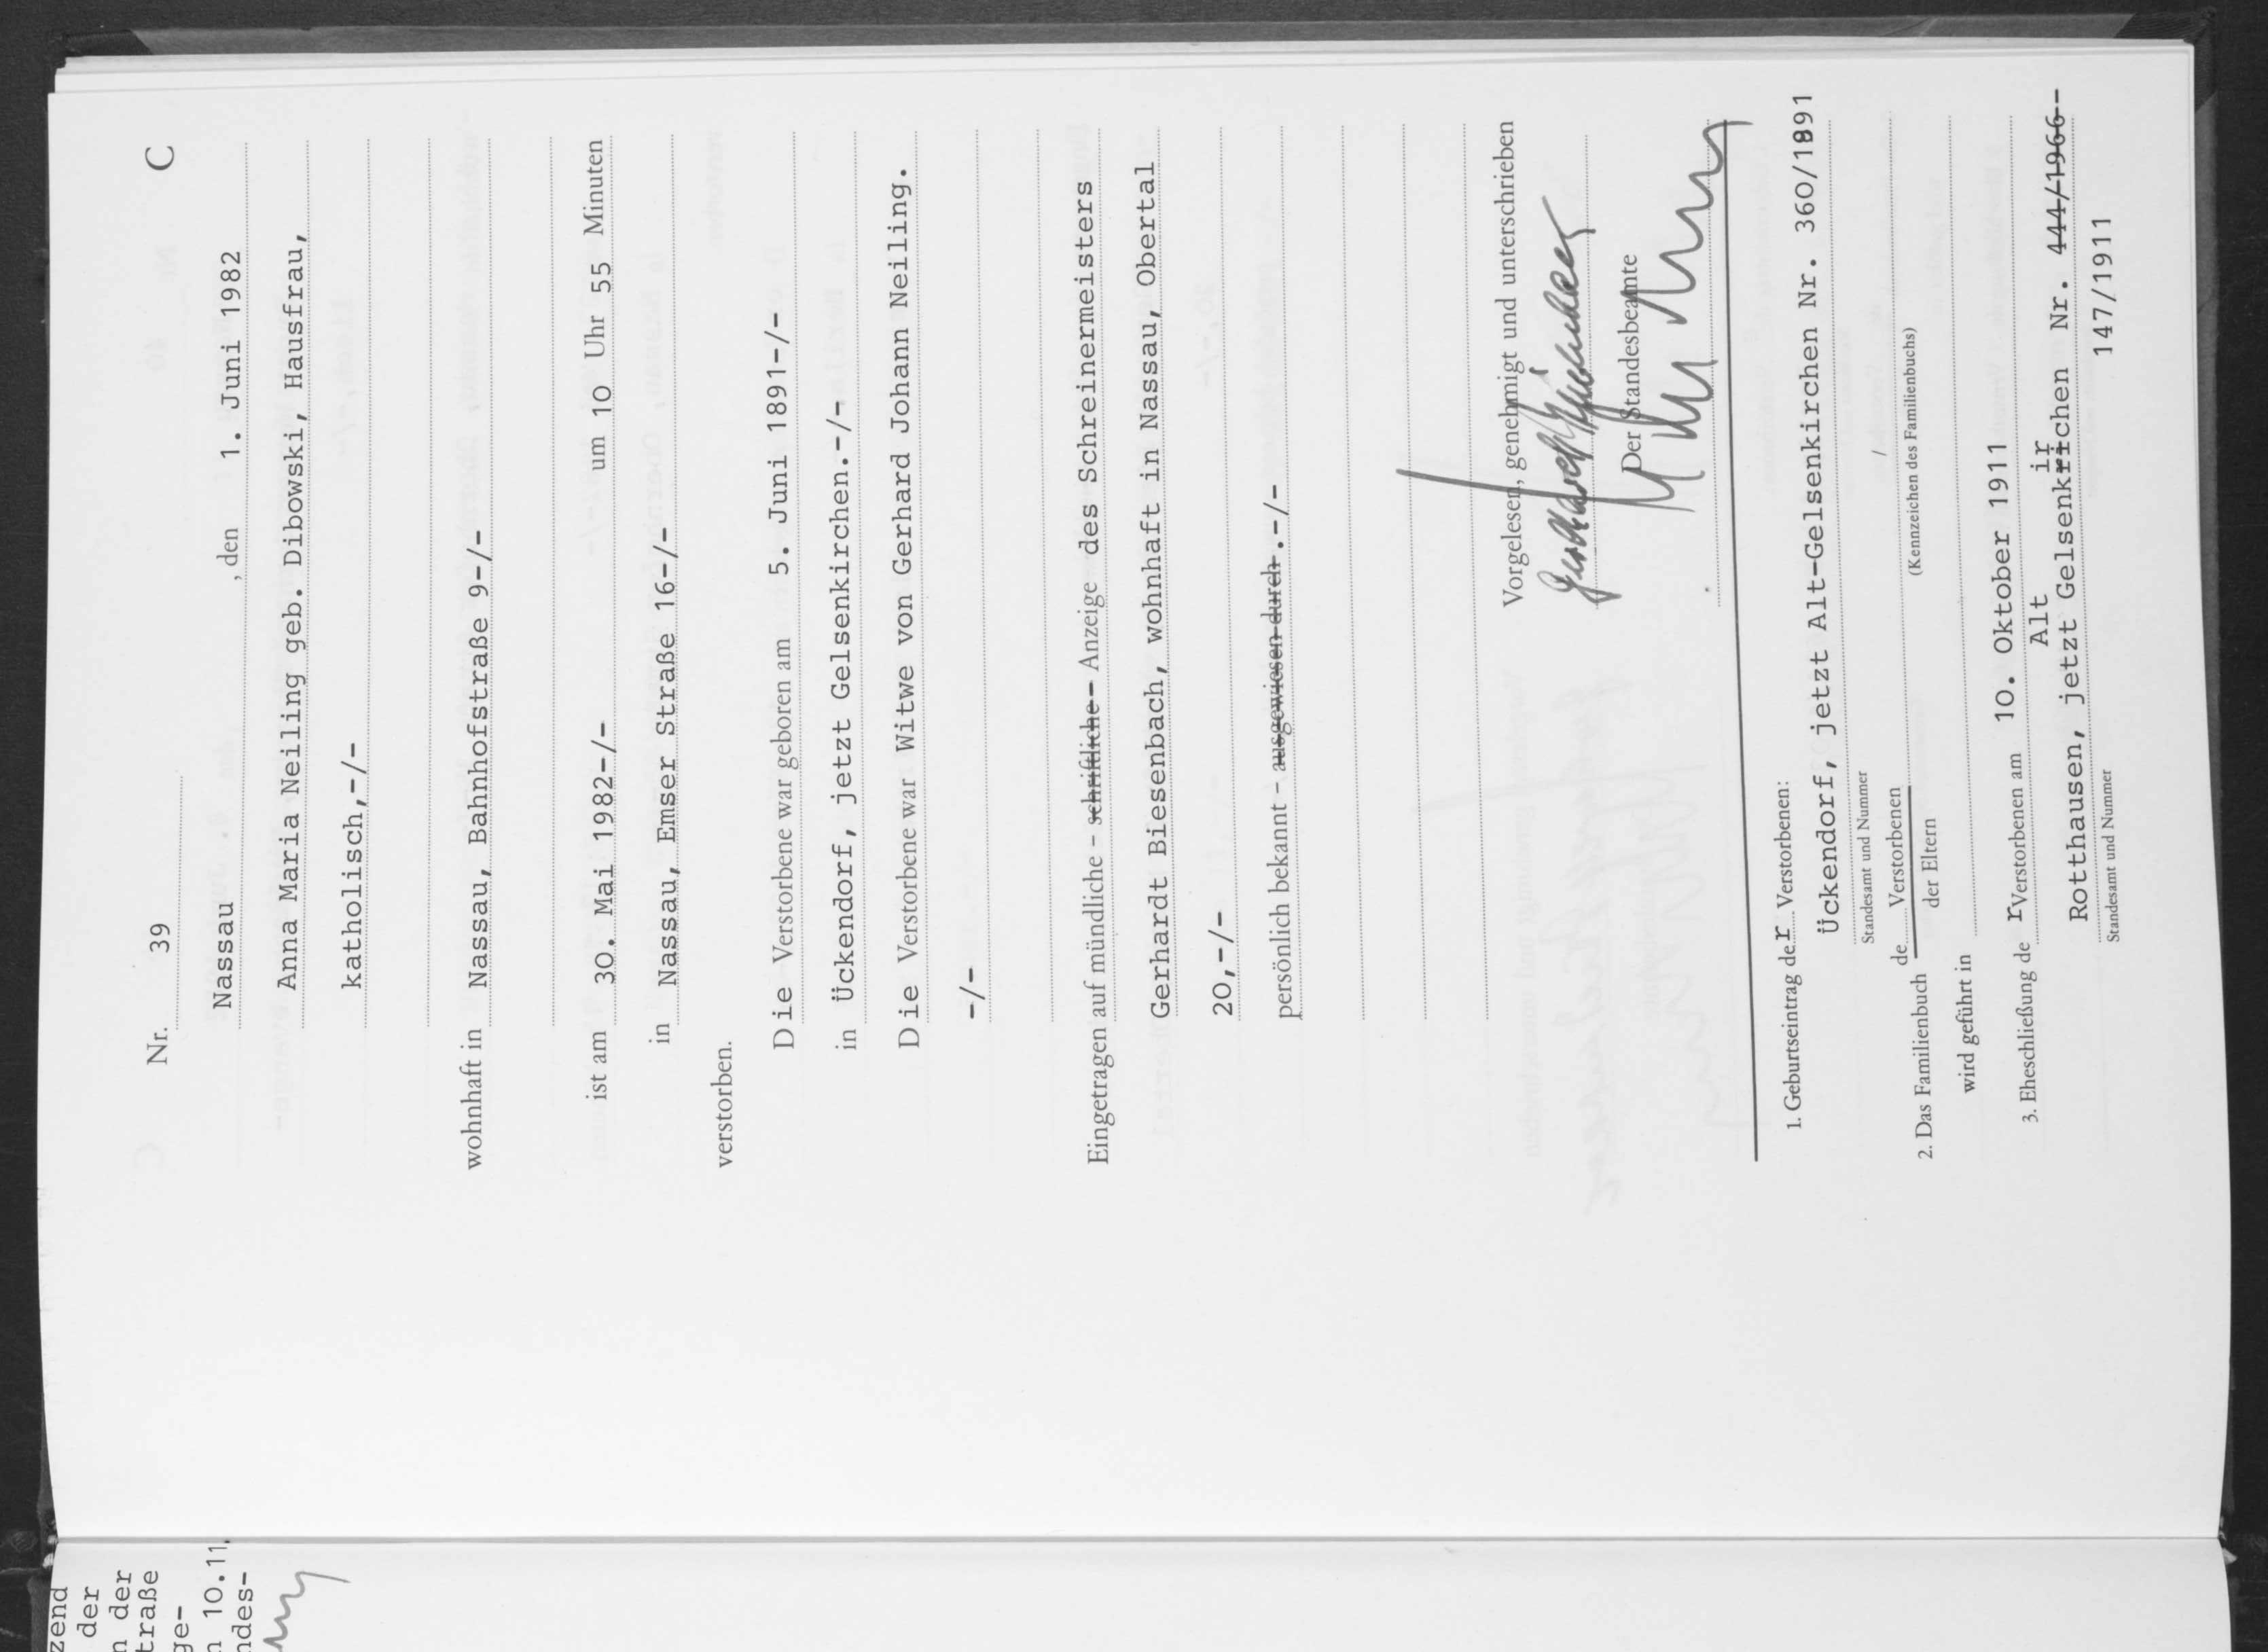 Nr. 39 C
Nassau , den 1. Juni 1982
Anna Maria Neiling geb. Dibowski, Hausfrau,
katholisch,-/-
wohnhaft in Nassau, Bahnhofstraße 9-/-
ist am 30. Mai 1982-/- um 10 Uhr 55 Minuten
in Nassau, Emser Straße 16-/-
verstorben.
Die Verstorbene war geboren am 5. Juni 1891-/-
in Ückendorf, jetzt Gelsenkirchen.-/-
Die Verstorbene war Witwe von Gerhard Johann Neiling.
-/-
Eingetragen auf mündliche - schriftliche - Anzeige des Schreinermeisters
Gerhardt Biesenbach, wohnhaft in Nassau, Obertal
20,-/-
persönlich bekannt - ausgewiesen durch-.-/-
Vorgelesen, genehmigt und unterschrieben
Der Standesbeamte
1. Geburtseintrag der Verstorbenen:
Ückendorf, jetzt Alt-Gelsenkirchen Nr. 360/1891
Standesamt und Nummer
2. Das Familienbuch de Verstorbenen /
der Eltern (Kennzeichen des Familienbuchs)
wird geführt in
3. Eheschließung der Verstorbenen am 10. Oktober 1911
Alt ir
Rotthausen, jetzt Gelsenkrichen Nr. 444/1966--
Standesamt und Nummer 147/1911
zend
der
n der
traße
ge-
n 10.11.
ndes-